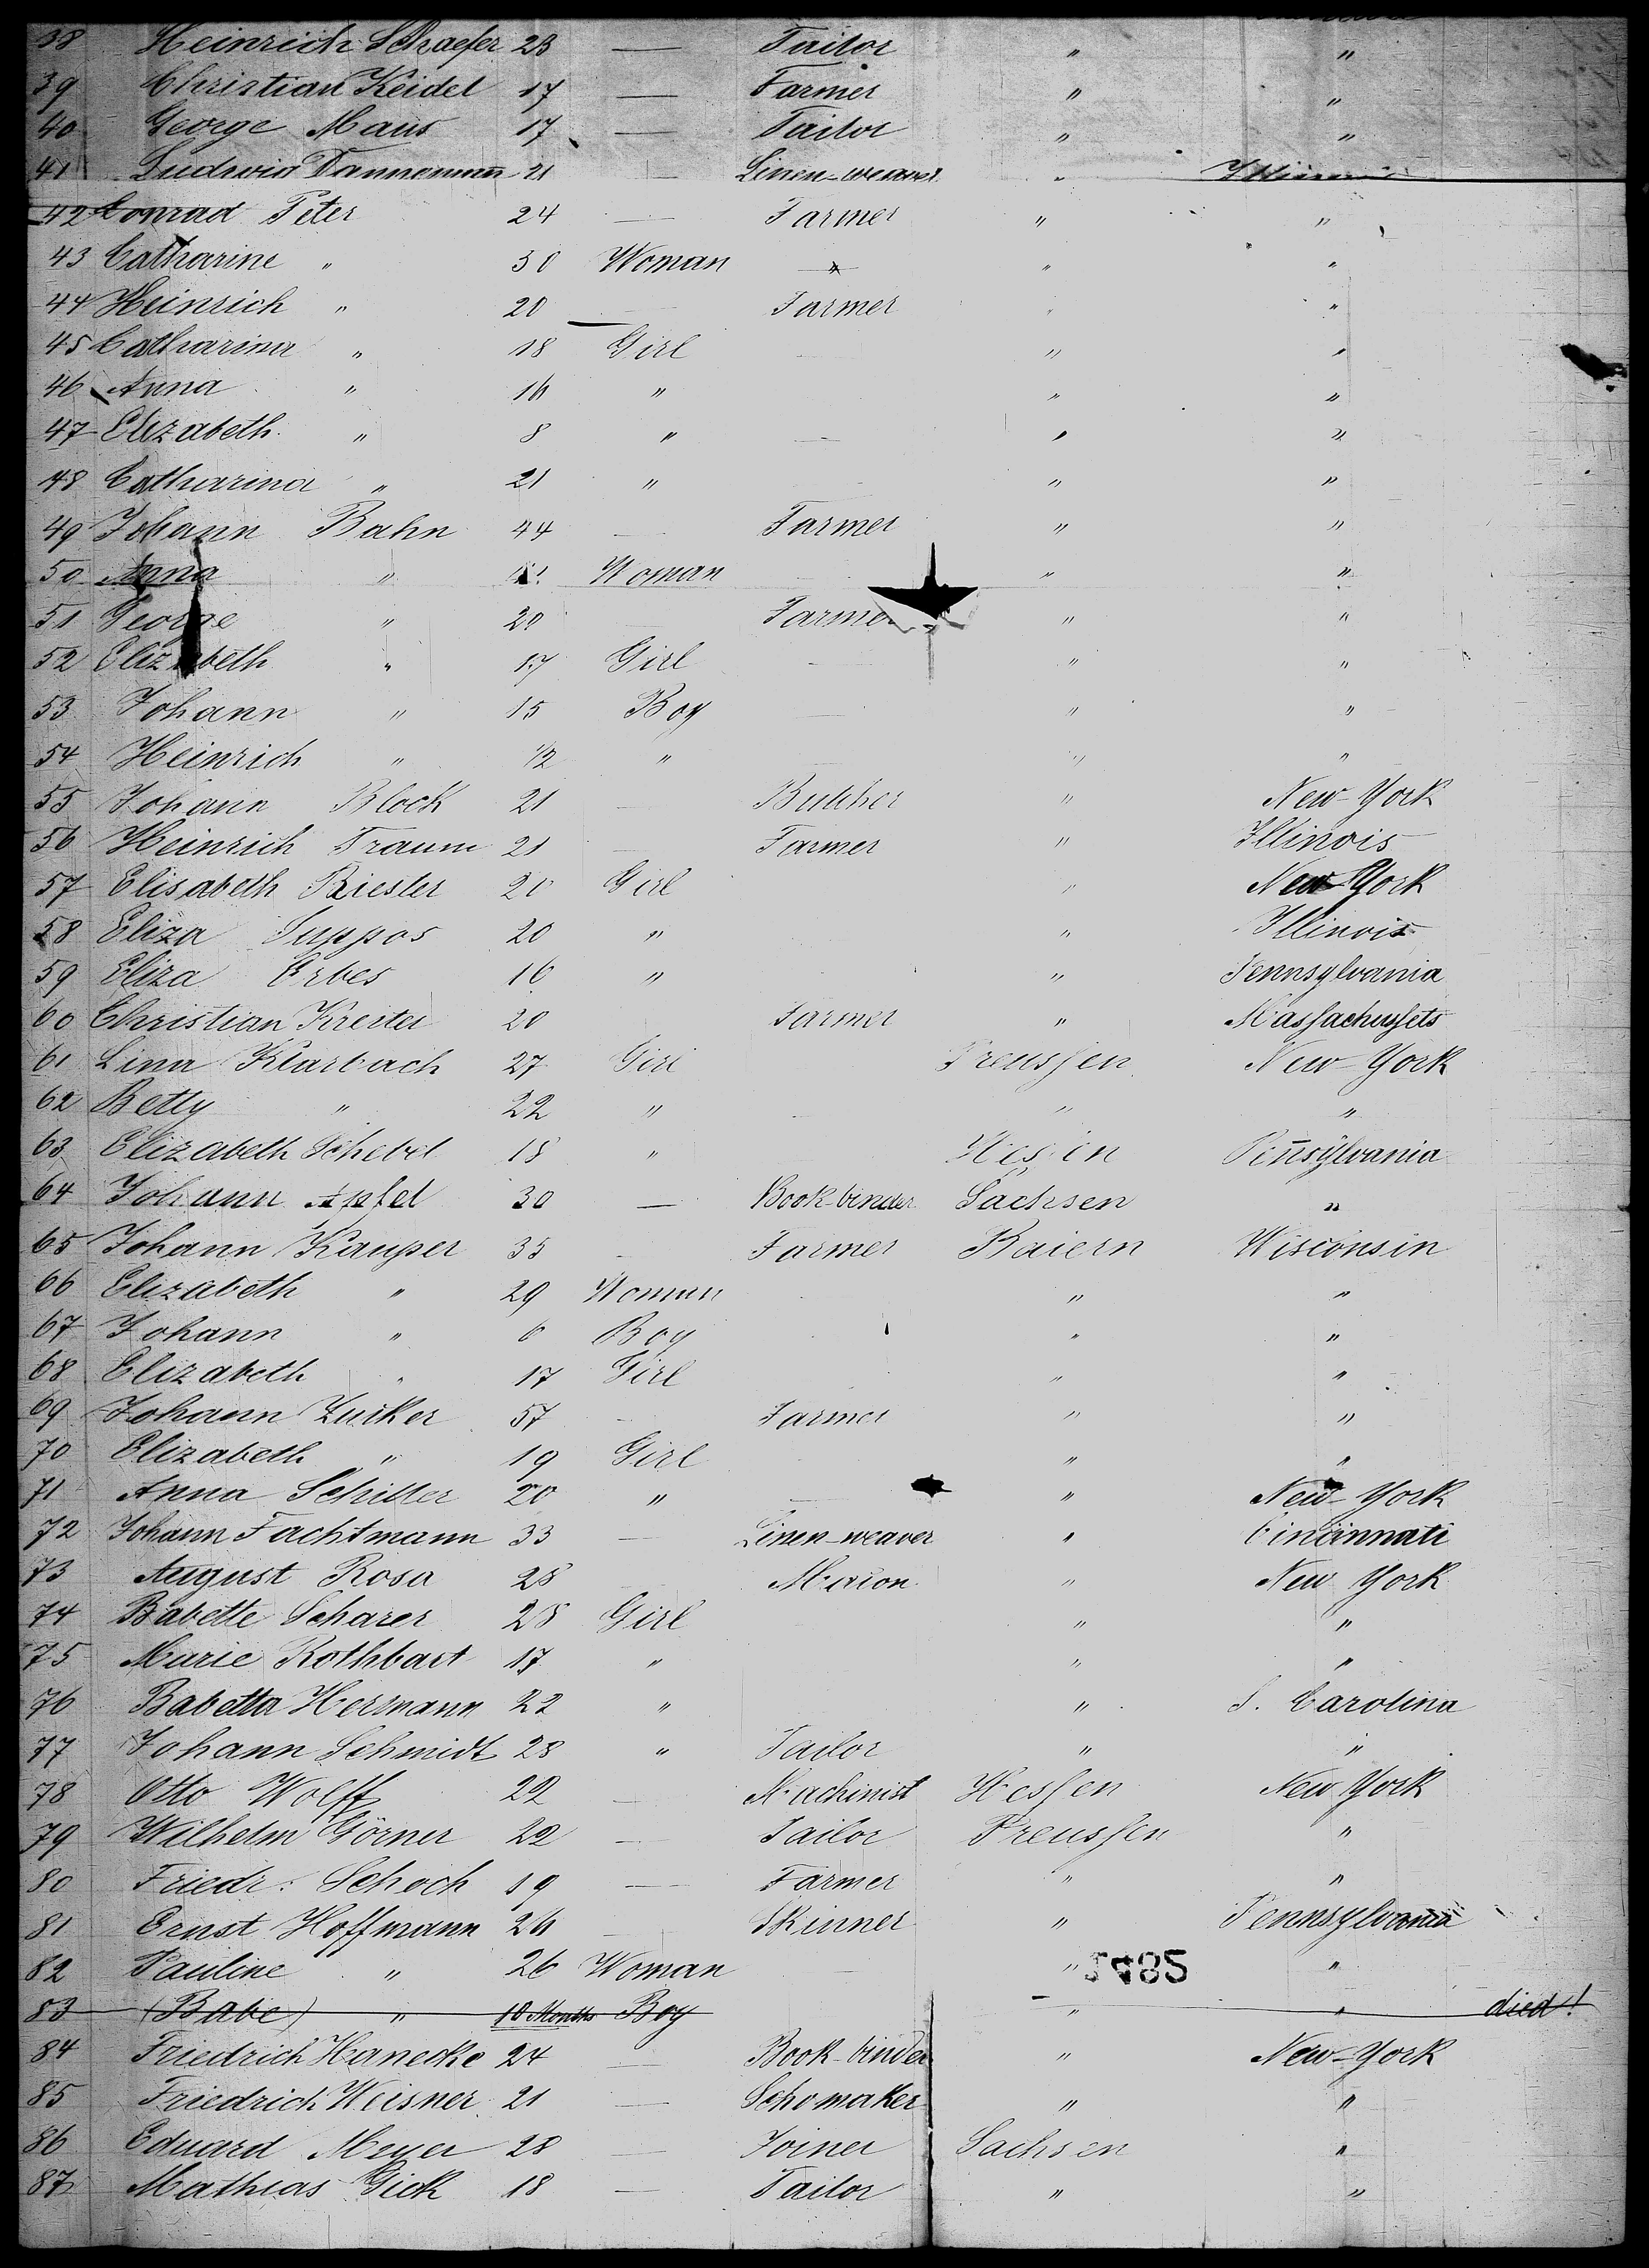 38 Heinrich Schaefer 23 — Tailor " "
39 Christian Keidel 17 — Farmer " "
40 George Maus 17 — Tailor " "
41 Ludwig 21 — Linen-weaver " Illinois
42 Conrad Peter 24 — Farmer " "
43 Catharine " 50 Woman " " "
44 Heinrich " 20 — Farmer " "
45 Catharina " 18 Girl " "
46 Anna " 16 " " "
47 Elizabeth " 8 " — " "
48 Catharina " 21 " " "
49 Johann Bahn 44 — Farmer " "
50 Anna " Woman " "
51 George " 20 Farmer " "
52 Elizabeth " 17 Girl — " "
53 Johann " 15 Boy — " "
54 Heinrich " 12 " " "
55 Johann Block 21 — Butcher " New-York
56 Heinrich Traum 21 — Farmer " Illinois
57 Elisabeth Riester 20 Girl " New-York
58 Eliza Suppos 20 " " Illinois
59 Eliza Erbes 16 " " Pennsylvania
60 Christian Kreiter 20 Farmer " Massachussets
61 Lina Klarbach 27 Girl Preussen New-York
62 Betty " 22 " " "
63 Elizabeth Schebel 18 " Hessen Pennsylvania
64 Johann Apfel 30 — Book-binder Sachsen "
65 Johann Kauper 35 - Farmer Baiern Wisconsin
66 Elizabeth " 29 Woman " "
67 Johann " 6 Boy " "
68 Elizabeth " 17 Girl " "
69 Johann Zucker 57 - Farmer " "
70 Elizabeth " 19 Girl " "
71 Anna Schiller 20 " — " New-York
72 Johann Fachtmann 33 — Linen-weaver " Cincinnati
73 August Rosa 28 Mason " New York
74 Babette Scharer 28 Girl " "
75 Marie Rothbart 17 " " "
76 Babetta Hermann 22 " " S. Carolina
77 Johann Schmidt 28 " Tailor " "
78 Otto Wolff 22 — Machinist Hessen New York
79 Wilhelm Görner 22 — Tailor Preussen "
80 Friedr. Schoch 19 — Farmer " "
81 Ernst Hoffmann 26 — Skinner " Pennsylvania
82 Pauline " 26 Woman — " "
83 (Babe) " 10 Months Boy " " died!
84 Friedrich Hanecke 24 — Book-binder " New-York
85 Friedrich Weisner 21 — Schomaker " "
86 Eduard Meyer 28 — Joiner Sachsen "
87 Mathias Gick 18 — Tailor " "